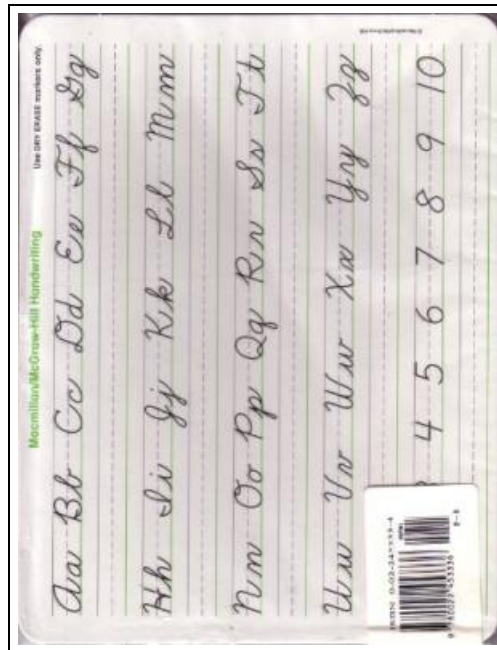 Macmillan/McGraw-Hill Handwriting
Use DRY ERASE markers only.
Aa Bb Cc Dd Ee Ff Gg
Hh Ii Jj Kk Ll Mm
Nn Oo Pp Qq Rr Ss Tt
Uu Vv Ww Xx Yy Zz
4 5 6 7 8 9 10